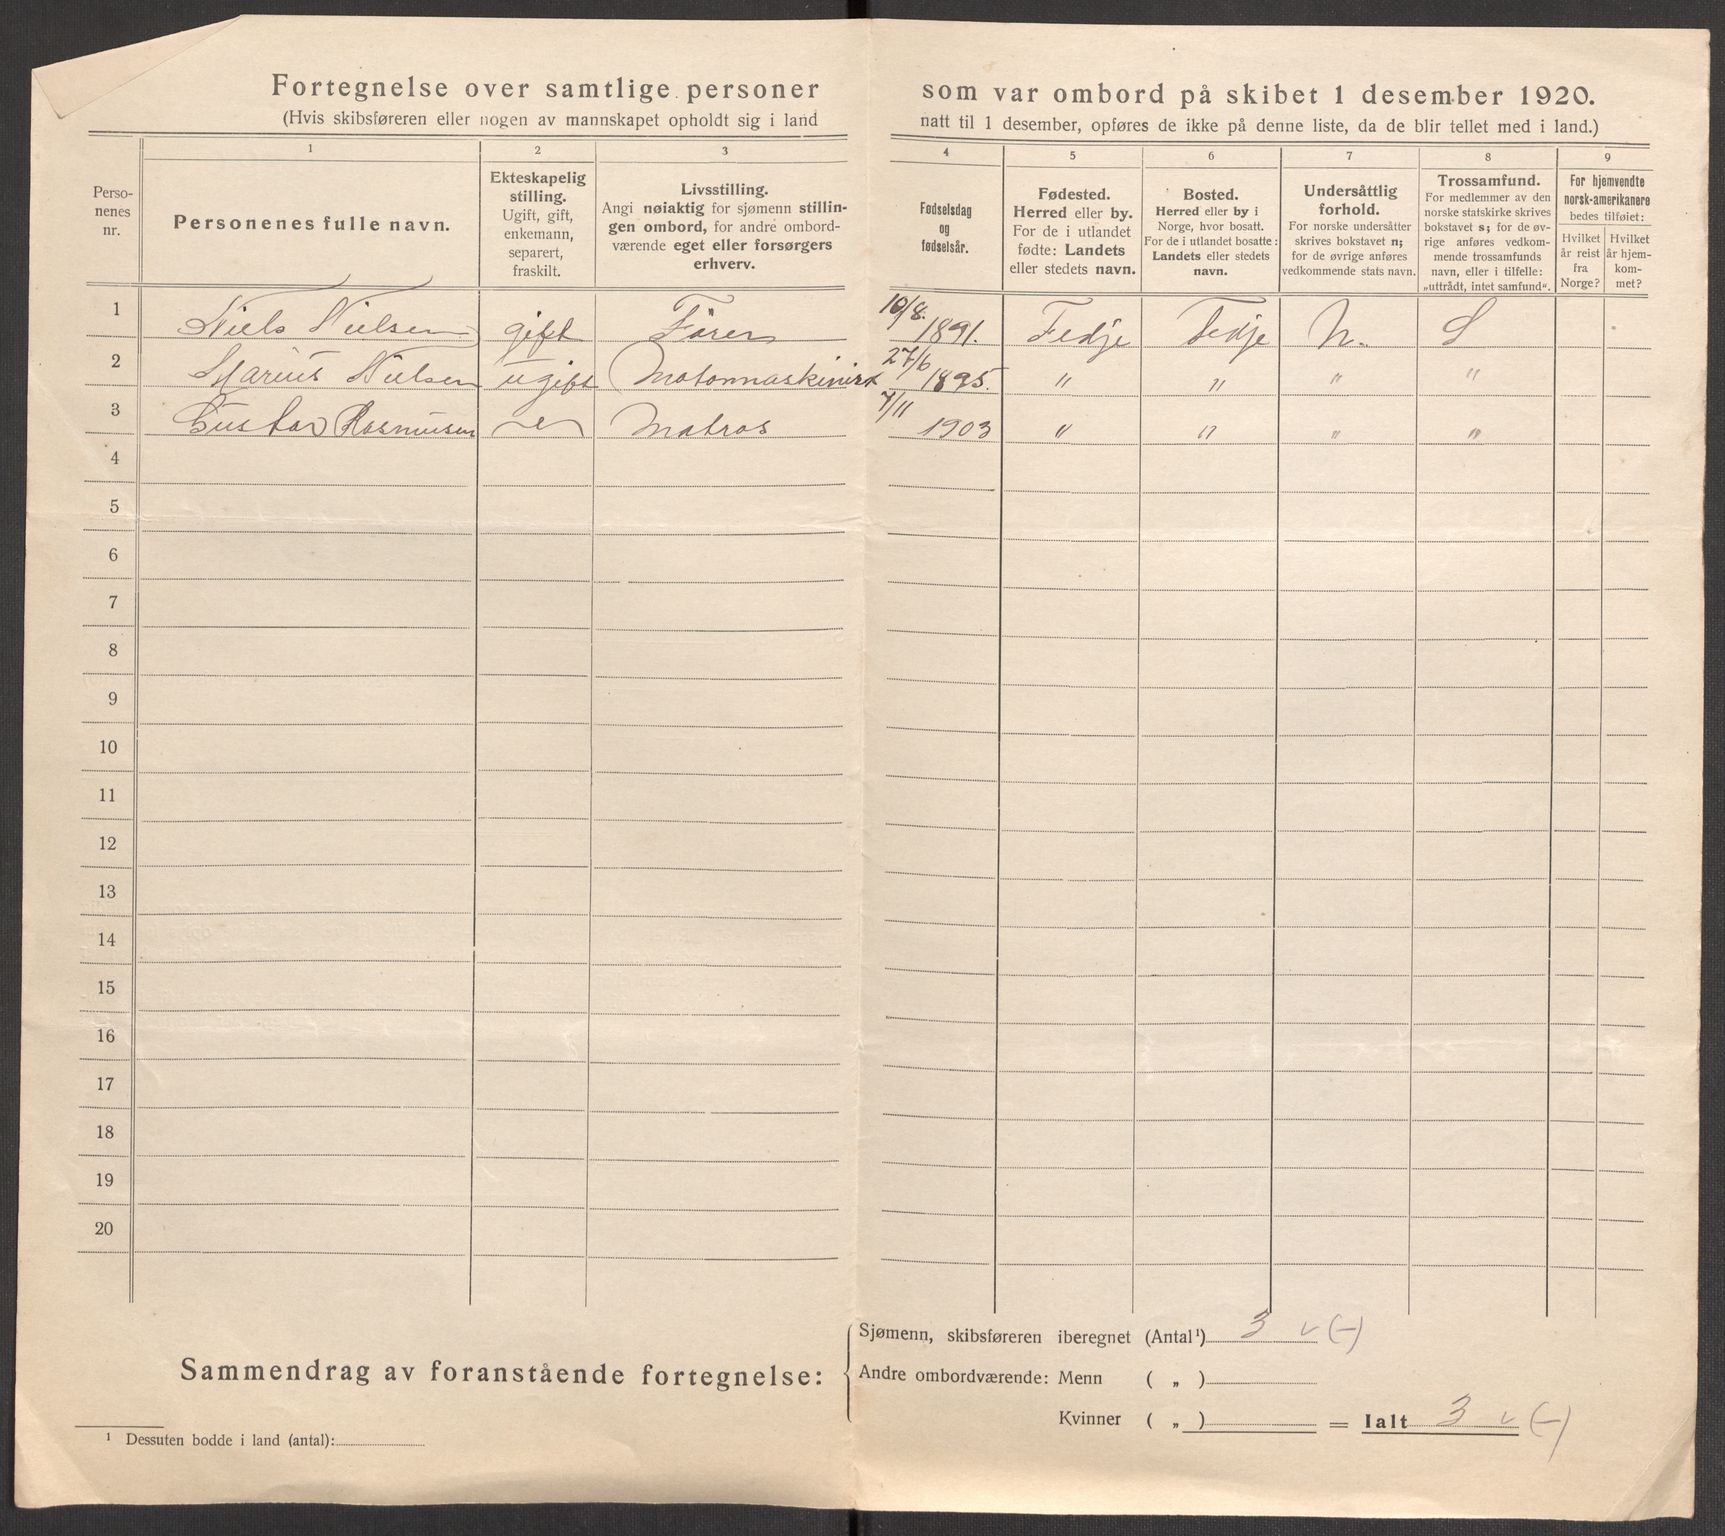 Fortegnelse over samtlige personer som var ombord på skibet 1 desember 1920.
(Hvis skibsføreren eller nogen av mannskapet opholdt sig i land natt til 1 desember, opføres de ikke på denne liste, da de blir tellet med i land.)
Perso-
nenes
nr.
1
Personenes fulle navn.
2
Ekteskapelig
stilling.
Ugift, gift,
enkemann,
separert,
fraskilt.
3
Livsstilling.
Angi nøiaktig for sjømenn stillin-
gen ombord, for andre ombord-
værende eget eller forsørgers
erhverv.
4
Fødselsdag
og
fødselsår.
5
Fødested.
Herred eller by.
For de i utlandet
fødte: Landets
eller stedets navn.
6
Bosted.
Herred eller by i
Norge, hvor bosatt.
For de i utlandet bosatte:
Landets eller stedets
navn.
7
Undersåttlig
forhold.
For norske undersåtter
skrives bokstavet n;
for de øvrige anføres
vedkommende stats navn.
8
Trossamfund.
For medlemmer av den
norske statskirke skrives
bokstavet s; for de øv-
rige anføres vedkom-
mende trossamfunds
navn, eller i tilfelle:
„uttrådt, intet samfund“.
9
For hjemvendte
norsk-amerikanere
bedes tilføiet:
Hvilket
år reist
fra
Norge?
Hvilket
år hjem-
kom-
met?
1 Niels Nielsen gift Förer 10/8. 1891. Fedje Fedje N. S
2 Marius Nielsen ugift Motormaskinist 27/6 1895. " " " "
3 Gustav Rasmusen Matros 7/11 1903 " " " "
4
5
6
7
8
9
10
11
12
13
14
15
16
17
18
19
20
Sammendrag av foranstående fortegnelse:
Sjømenn, skibsføreren iberegnet (Antal¹) 3 v (-)
Andre ombordværende: Menn ( „ )
Kvinner ( „ ) = Ialt 3 v (-)
¹ Dessuten bodde i land (antal):